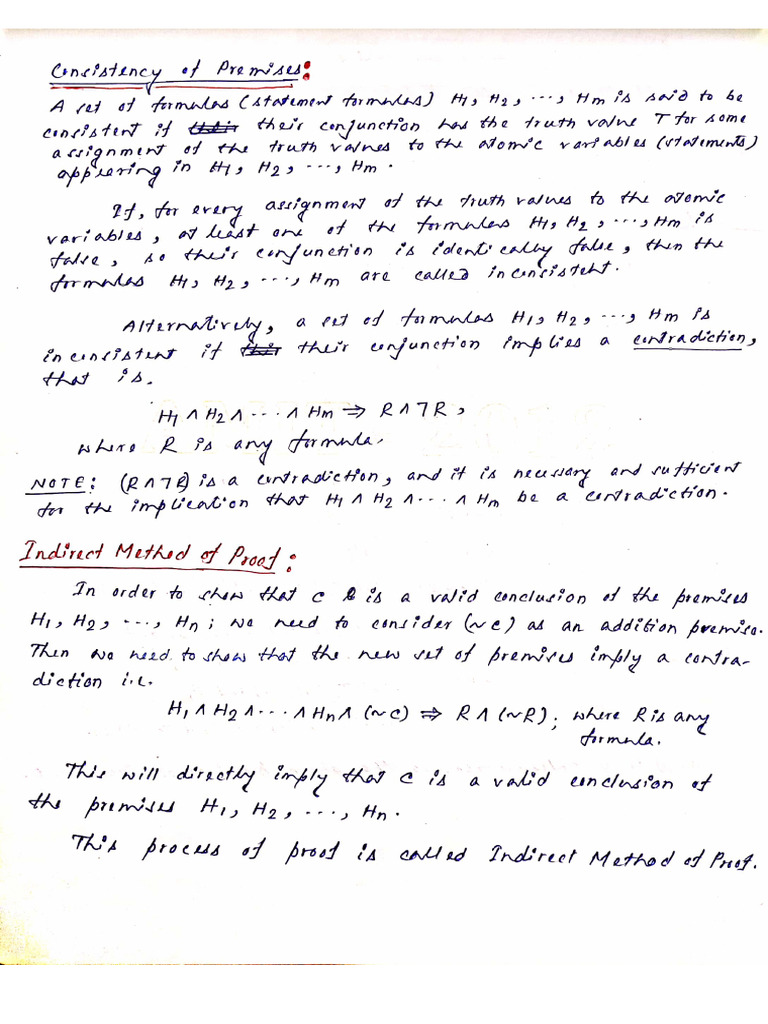 Consistency of Premises:
A set of formulas (statement formulas) H1, H2, ..., Hm is said to be
consistent if their conjunction has the truth value T for some
assignment of the truth values to the atomic variables (statements)
appeering in H1, H2, ..., Hm.
If, for every assignment of the truth values to the atomic
variables, at least one of the formulas H1, H2, ..., Hm is
false, so their conjunction is identically false, then the
formulas H1, H2, ..., Hm are called inconsistent.
Alternatively, a set of formulas H1, H2, ..., Hm is
inconsistent if their conjunction implies a contradiction,
that is.
H1 ∧ H2 ∧ ... ∧ Hm ⇒ R ∧ ¬R,
where R is any formula.
NOTE: (R ∧ ¬R) is a contradiction, and it is necessary and sufficient
for the implication that H1 ∧ H2 ∧ ... ∧ Hm be a contradiction.
Indirect Method of Proof:
In order to show that C is a valid conclusion of the premises
H1, H2, ..., Hn; we need to consider (~C) as an addition premise.
Then we need to show that the new set of premises imply a contra-
diction i.e.
H1 ∧ H2 ∧ ... ∧ Hn ∧ (~C) ⇒ R ∧ (~R); where R is any
formula.
This will directly imply that C is a valid conclusion of
the premises H1, H2, ..., Hn.
This process of proof is called Indirect Method of Proof.